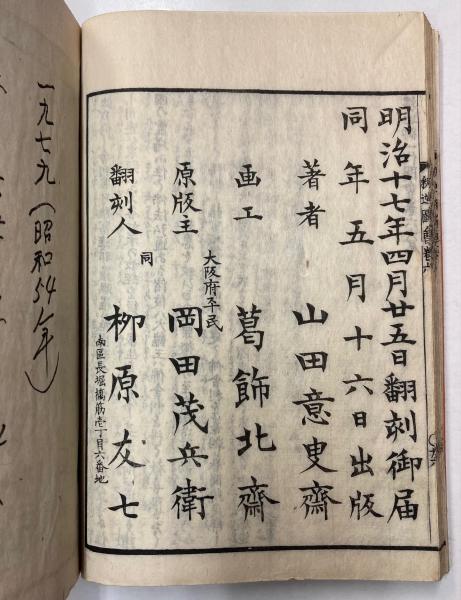 明治十七年四月廿五日翻刻御届
同年五月十六日出版
著者 山田意叟齋
画工 葛飾北齋
大阪府平民
原版主 岡田茂兵衛
同
翻刻人 柳原友七
南區長堀橋筋壱丁目六番地
一九七九(昭和54年)